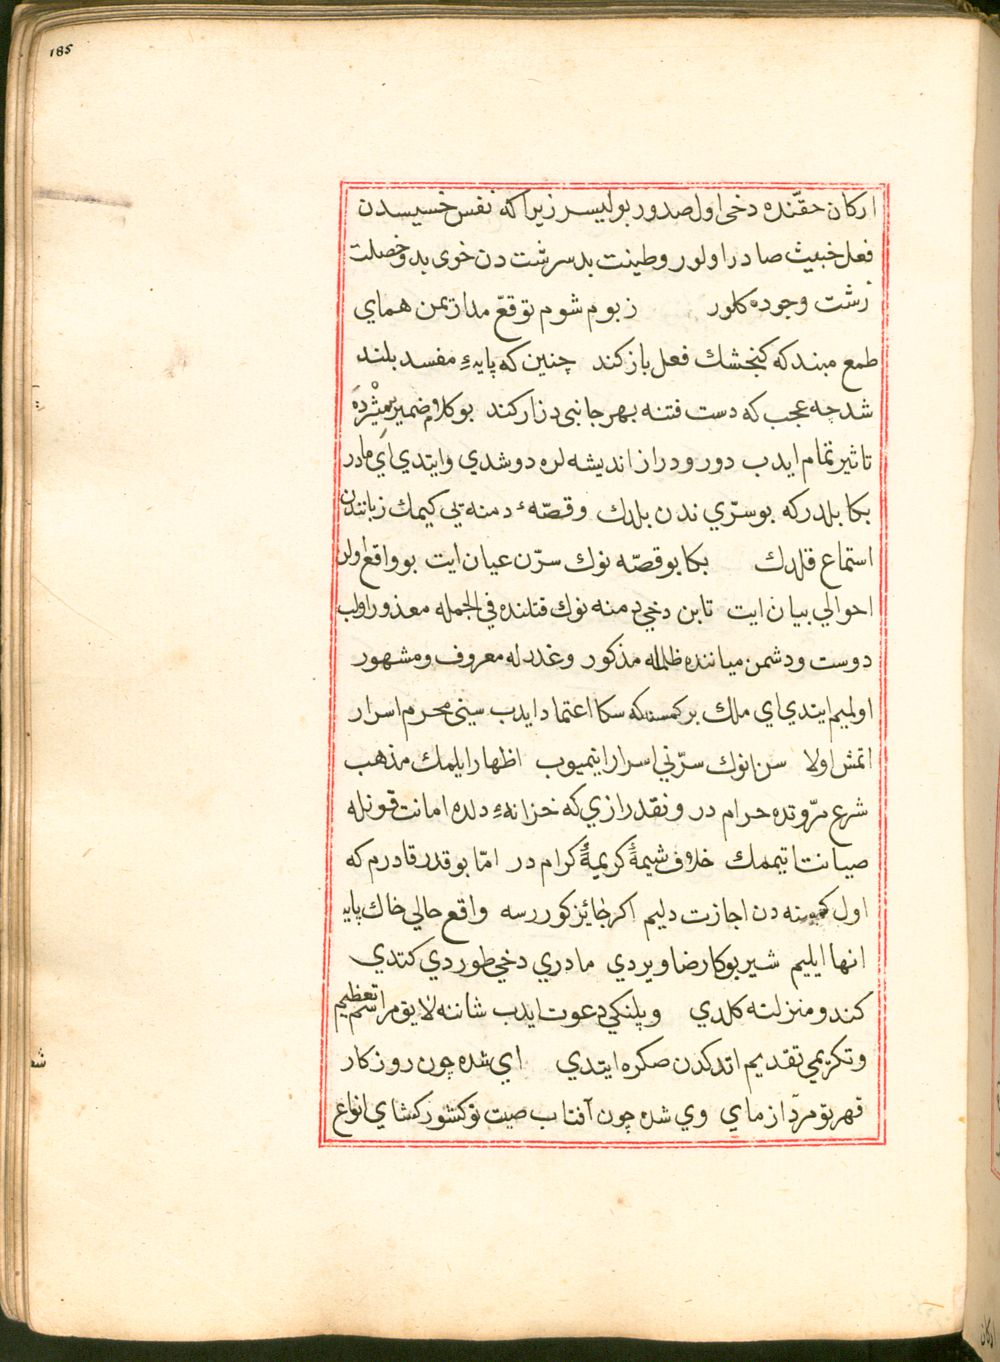 185
اركان حقّنده دخى اول صدور بوليسر زيرا كه نفس خسيسدن
فعل خبيث صادر اولور و طينت بد سرشت دن خوى بد و خصلت
زشت وجوده كلور زبوم شوم توقعّ مدار يمن هماي
طمع مبند كه كنجشك فعل باز كند چنين كه پايهء مفسد بلند
شد چه عجب كه دست فتنه بهر جانبى دزار كند بو كلام ضمير
تاثير تمام ايدب دور و دراز انديشه لره دوشدي و ايتدي اي مادر
بكا بلدر كه بو سرّي ندن بلدك و قصّهٔ دمنه يي كيمك زبانندن
استماع قلدك بكا بو قصّه نوك سرّن عيان ايت بو واقع اولن
احوالي بيان ايت تا بن دخي دمنه نوك قتلنده في الجمله معذور اولب
دوست و دشمن مياننده ظلمله مذكور و غدرله معروف و مشهور
اولميم ايتدي اي ملك بر كمسنه كه سكا اعتماد ايدب سيني محرم اسرار
اتمش اولا سن انوك سرّني اسرار ايتميوب اظهار ايلمك مذهب
شرع مرّوتده حرام در و نقد رازي كه خزانهء دلده امانت قونله
صيانت ايتيممك خلاف شيمهٔ كريمهٔ كرام در امّا بو قدر قادرم كه
اول كمسنه دن اجازت دليم اكر جائز كوررسه واقع حالي خاك پايه
انها ايليم شير بوكا رضا ويردي مادري دخي طوردي كتدي
كندو منزلنه كلدي و پلنكي دعوت ايدب شاننه لايق مراسم تعظيم
و تكريمي تقديم اتدكدن صكره ايتدي اي شده چون روزكار
قهر تو مرد ازماي وي شده چون آفتاب صيت تو كشور كشاي انواع
اركان